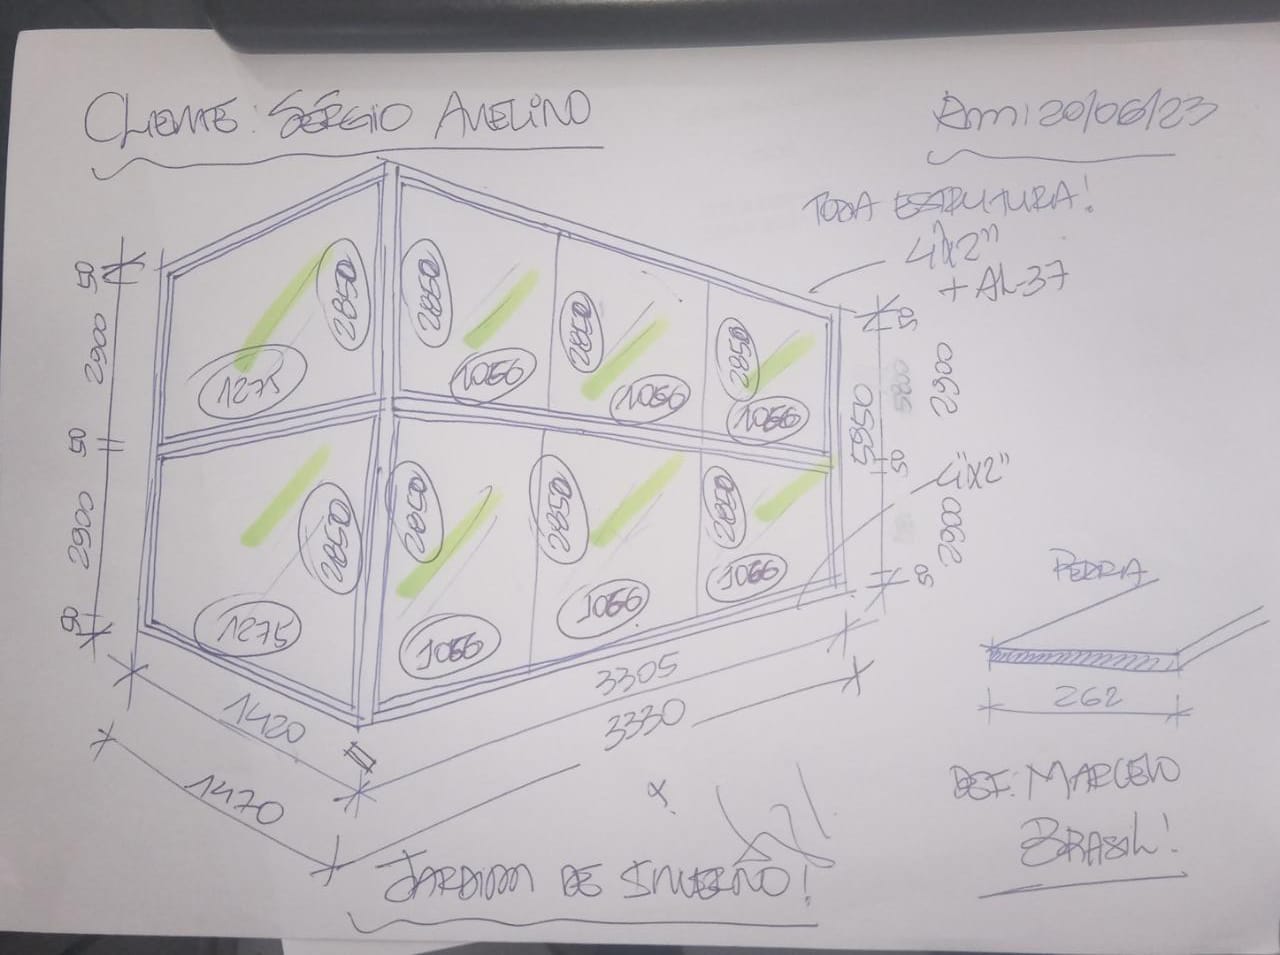 CLIENTE: SÉRGIO AVELINO
20/06/23
TODA ESTRUTURA!
4"x2"
+ AL-37
50
2900
50
2900
50
2850
1275
2850
1066
2850
1066
2850
1066
2850
1275
2850
1066
2850
1066
2850
1066
50
2900
5800
5950
50
2900
50
4"x2"
1420
1470
3305
3330
PEDRA
262
DEF: MARCELO
BRASIL!
JARDIM DE INVERNO!